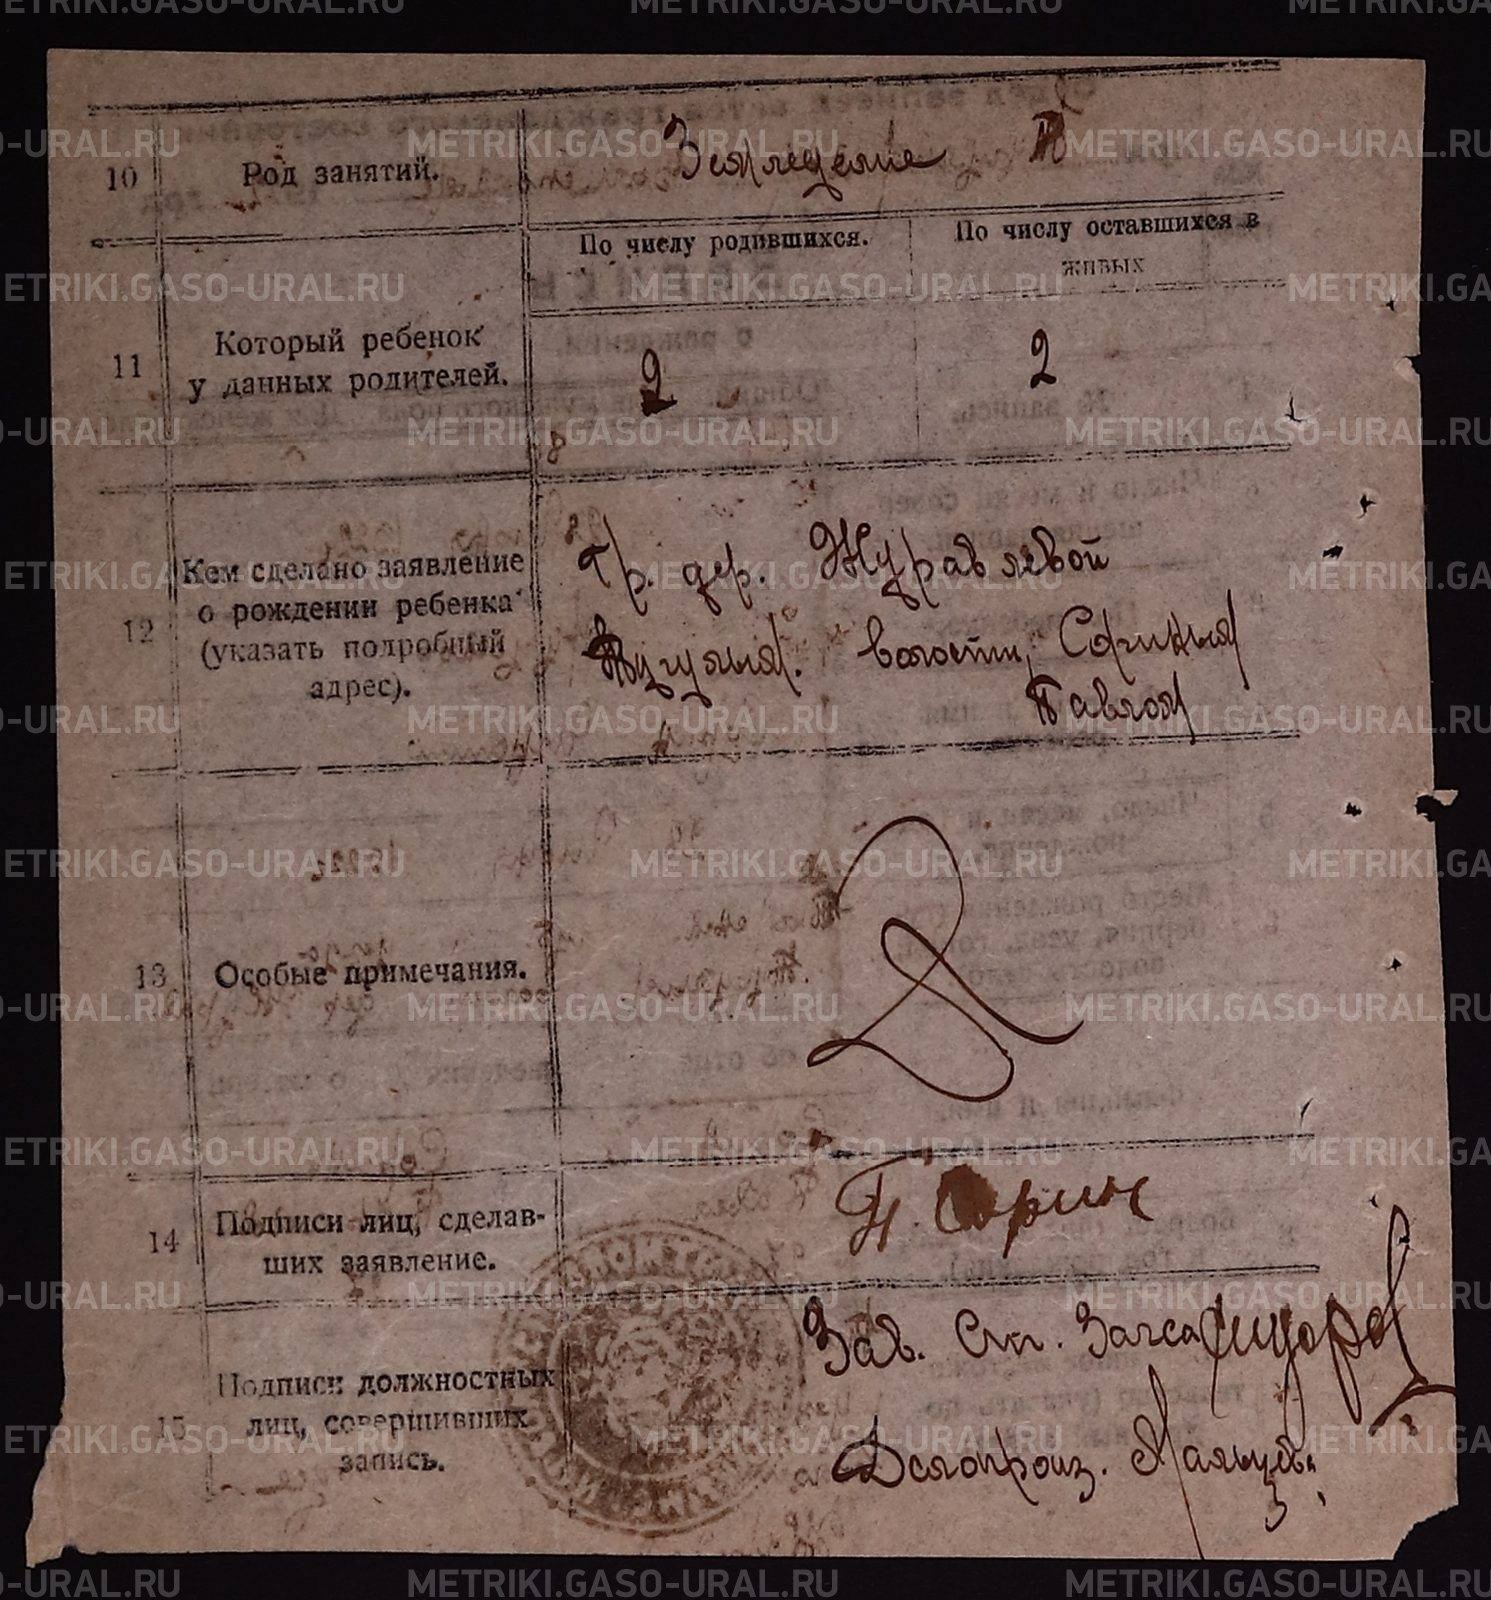 10 Род занятий. Земледелие
11 Который ребенок у данных родителей.
По числу родившихся. По числу оставшихся в живых
2 2
12 Кем сделано заявление
о рождении ребенка
(указать подробный
адрес).
Гр. дер. Журавлевой
волости, Сорикын
Павлом
13 Особые примечания.
14 Подписи лиц, сделав-
ших заявление.
П. Сорин
15 Подписи должностных
лиц, совершивших
запись.
Зав. Загса
Делопроиз.
METRIKI.GASO-URAL.RU